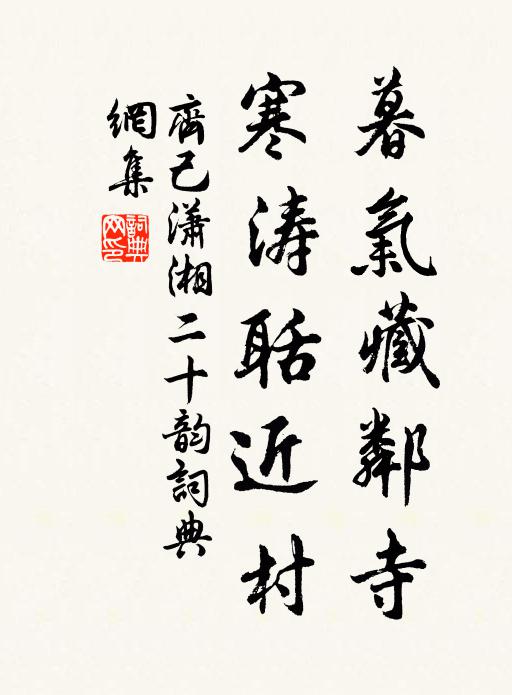 暮氣藏鄰寺
寒涛聒近村
齊己瀟湘二十韵詞典
網集
詞典
网印